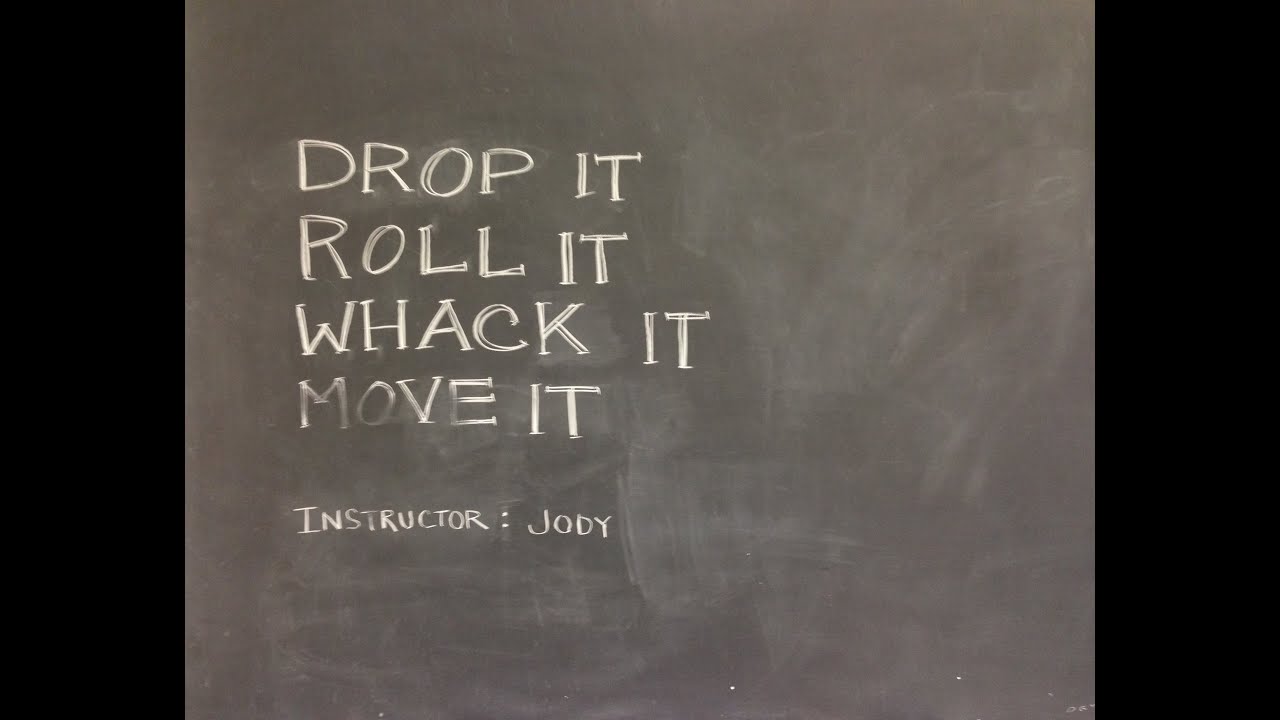 DROP IT
ROLL IT
WHACK IT
MOVE IT
INSTRUCTOR: JODY